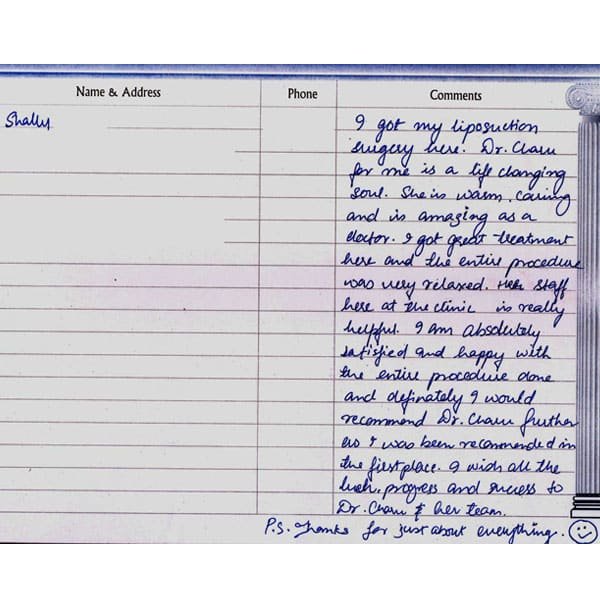 Name & Address Phone Comments
Shally
I got my liposuction
surgery here. Dr. Charu
for me is a life changing
soul. She is warm, caring
and is amazing as a
doctor. I got great treatment
here and the entire procedure
was very relaxed. Her staff
here at the clinic is really
helpful. I am absolutely
satisfied and happy with
the entire procedure done
and definately I would
recommend Dr. Charu further
as I was been recommended in
the first place. I wish all the
luck, progress and success to
Dr. Charu & her team.
P.S. Thanks for just about everything. ☺